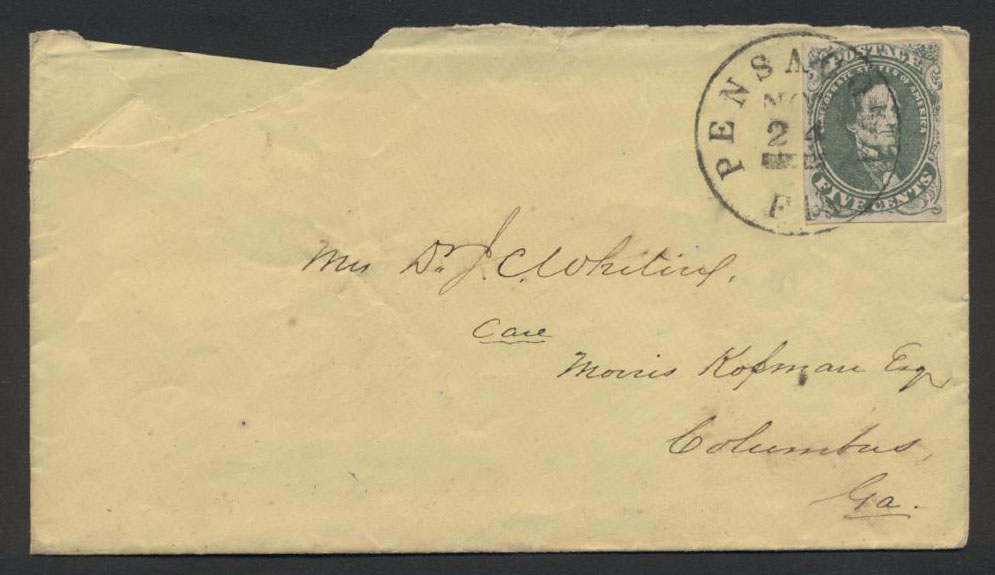 PENSACOLA
NOV
24
Fla
POSTAGE
CONFEDERATE STATES OF AMERICA
FIVE CENTS
Mrs Dr. J. C. Whiting.
Care
Morris Kofman Esq
Columbus,
Ga.